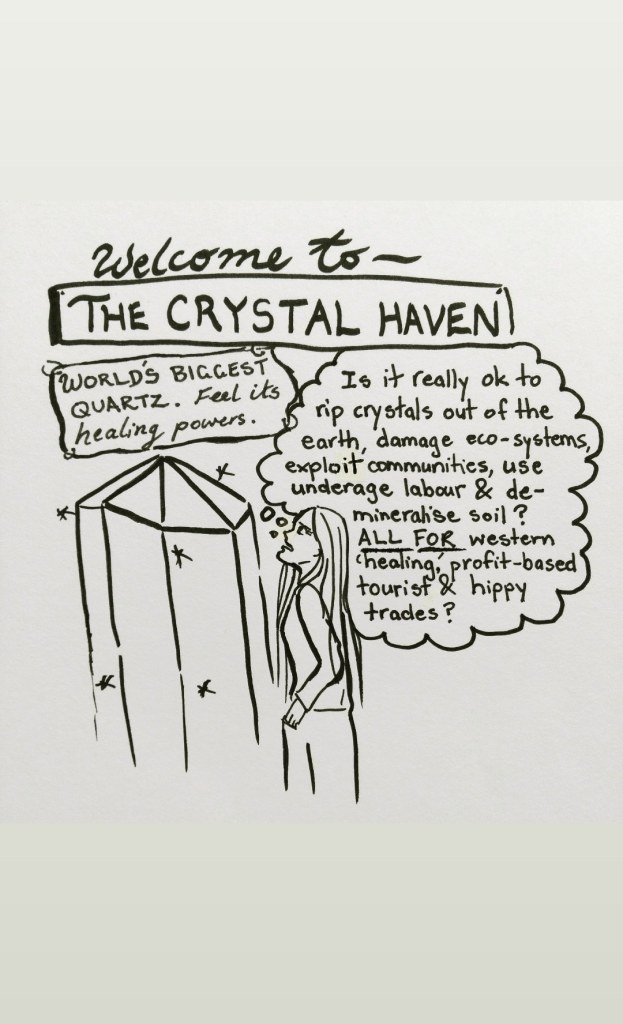 Welcome to —
THE CRYSTAL HAVEN
WORLD'S BIGGEST
QUARTZ. Feel its
healing powers.
Is it really ok to
rip crystals out of the
earth, damage eco-systems,
exploit communities, use
underage labour & de-
mineralise soil?
ALL FOR western
'healing', profit-based
tourist & hippy
trades?